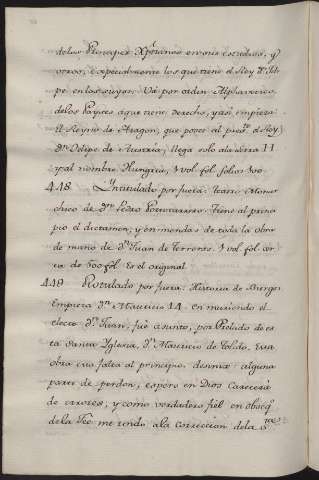 de los Principes Xptianos en sus estados, y
otros, especialmente los que tiene el Rey Dn Feli-
pe en los suyos. Vá por orden Alphavetico,
de los Payses a que tiene derecho, y asi empieza
el Reyno de Aragon, que posee al presente el Rey
Dn Felipe de Austria, llega solo a la letra H
y al nombre Hungria, 1 vol. fol. folios 500
448. Yntitulado por fuera: Teatro Monar
chico de Dn Pedro Portocarrero. Tiene al princi
pio el dictamen, y enmiendas de toda la obra
de mano de Dn Juan de Ferreras. 1 vol. fol. cer
ca de 500 fol. Es el original
449 Rotulado por fuera: Historia de Burgos.
Empieza Dn Mauricio 14. En muriendo el
electo Dn Juan, fue asunto, por Prelado de es
ta Santa Yglesia, Dn Mauricio de Toledo. Esta
obra está falta al principio, de una alguna
parte de perdon, espero en Dios carecera
de errores, y como verdadero fiel en obseqo
de la Fee me rindo a la correccion de la Sta